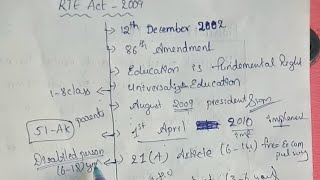 RTE Act - 2009
12th December 2002
86th Amendment
Education is Fundomental Right
1-8class
Universalize Education
August 2009 president Sign
parents
51-AK
1st April 2010 implement
imp
Disabled person
(6-18) yrs
21(A) Article (6-14) free & com
pulsory